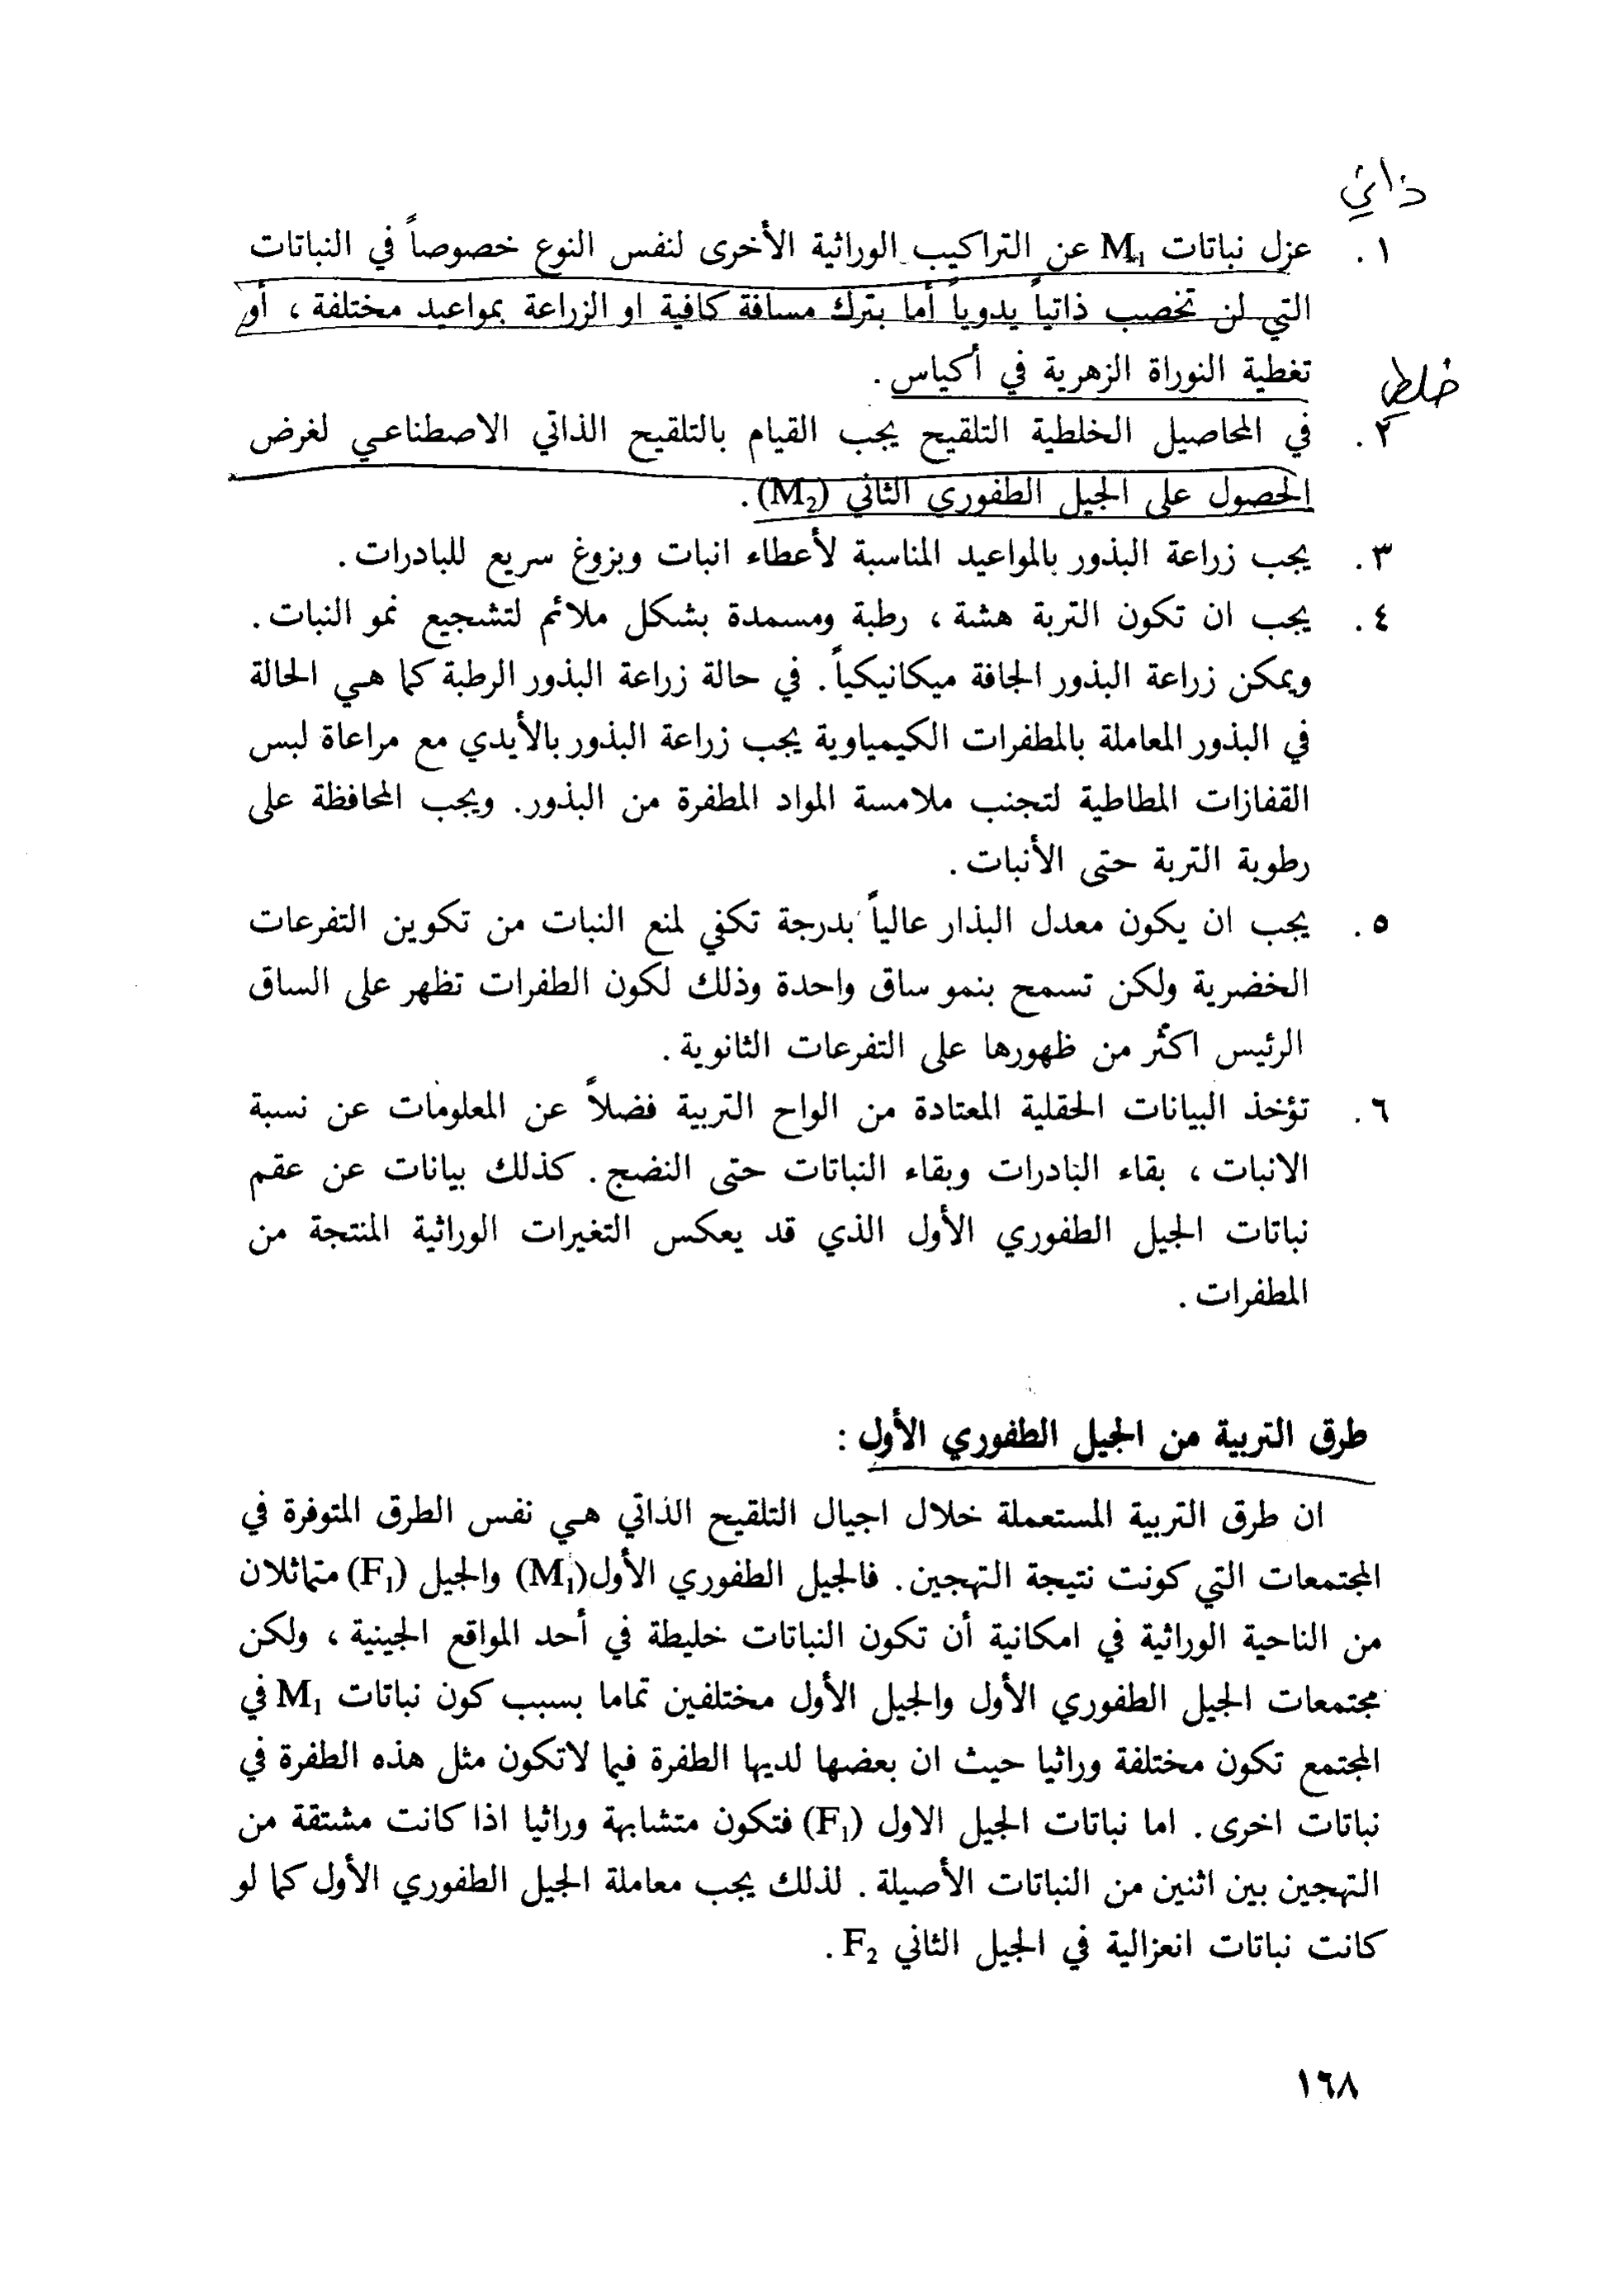 ذاتي
١. عزل نباتات M₁ عن التراكيب الوراثية الأخرى لنفس النوع خصوصاً في النباتات
التي لن تخصب ذاتياً يدوياً أما بترك مسافة كافية او الزراعة بمواعيد مختلفة ، أو
تغطية النوراة الزهرية في أكياس .
خلطي
٢. في المحاصيل الخلطية التلقيح يجب القيام بالتلقيح الذاتي الاصطناعي لغرض
الحصول على الجيل الطفوري الثاني (M₂) .
٣. يجب زراعة البذور بالمواعيد المناسبة لأعطاء انبات وبزوغ سريع للبادرات .
٤. يجب ان تكون التربة هشة ، رطبة ومسمدة بشكل ملائم لتشجيع نمو النبات .
ويمكن زراعة البذور الجافة ميكانيكياً . في حالة زراعة البذور الرطبة كما هي الحالة
في البذور المعاملة بالمطفرات الكيمياوية يجب زراعة البذور بالأيدي مع مراعاة لبس
القفازات المطاطية لتجنب ملامسة المواد المطفرة من البذور. ويجب المحافظة على
رطوبة التربة حتى الأنبات .
٥. يجب ان يكون معدل البذار عالياً بدرجة تكفي لمنع النبات من تكوين التفرعات
الخضرية ولكن تسمح بنمو ساق واحدة وذلك لكون الطفرات تظهر على الساق
الرئيس اكثر من ظهورها على التفرعات الثانوية .
٦. تؤخذ البيانات الحقلية المعتادة من الواح التربية فضلاً عن المعلومات عن نسبة
الانبات ، بقاء النادرات وبقاء النباتات حتى النضج . كذلك بيانات عن عقم
نباتات الجيل الطفوري الأول الذي قد يعكس التغيرات الوراثية المنتجة من
المطفرات .
طرق التربية من الجيل الطفوري الأول :
ان طرق التربية المستعملة خلال اجيال التلقيح الذاتي هي نفس الطرق المتوفرة في
المجتمعات التي كونت نتيجة التهجين . فالجيل الطفوري الأول(M₁) والجيل (F₁) متماثلان
من الناحية الوراثية في امكانية أن تكون النباتات خليطة في أحد المواقع الجينية ، ولكن
مجتمعات الجيل الطفوري الأول والجيل الأول مختلفين تماما بسبب كون نباتات M₁ في
المجتمع تكون مختلفة وراثيا حيث ان بعضها لديها الطفرة فيما لاتكون مثل هذه الطفرة في
نباتات اخرى . اما نباتات الجيل الاول (F₁) فتكون متشابهة وراثيا اذا كانت مشتقة من
التهجين بين اثنين من النباتات الأصيلة . لذلك يجب معاملة الجيل الطفوري الأول كما لو
كانت نباتات انعزالية في الجيل الثاني F₂ .
١٦٨